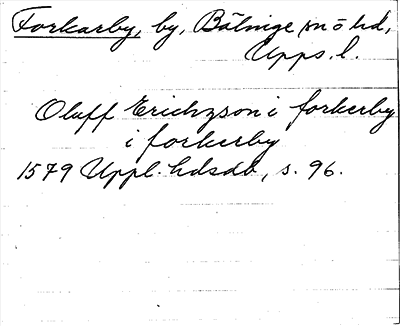 Forkarby, by, Bälinge sn o hd,
Upps. l.
Oluff Erichzson i forkerby
i forkerby
1579 Uppl. hdsdb, s. 96.